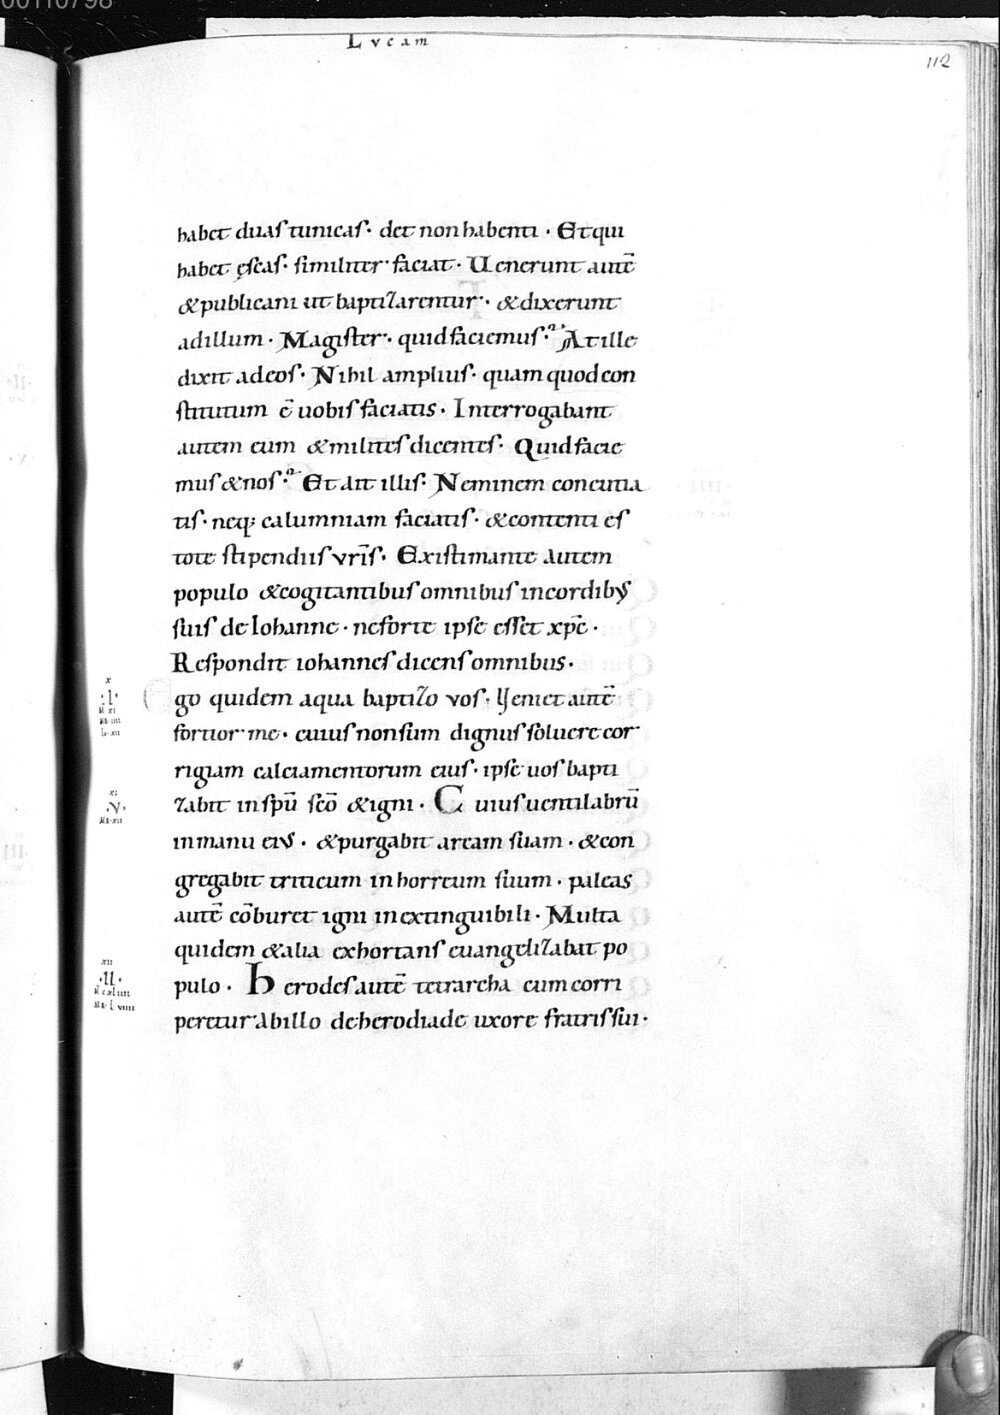 00110798
Lvcam
112
habet duas tunicas· det non habenti· Et qui
habet ęscas· similiter faciat· Uenerunt autē
& publicani ut baptizarentur· & dixerunt
ad illum· Magister· quid faciemus? At ille
dixit ad eos· Nihil amplius· quam quod con
stitutum ē uobis faciatis· Interrogabant
autem eum & milites dicentes· Quid facie
mus & nos? Et ait illis· Neminem concutia
tis· neq; calumniam faciatis· & contenti es
tote stipendiis vr̄is· Existimante autem
populo & cogitantibus omnibus in cordibus
suis de Iohanne· ne forte ipse esset xp̄c·
Respondit iohannes dicens omnibus·
Ego quidem aqua baptizo vos· Ueniet autē
fortior me· cuius non sum dignus soluere cor
rigiam calciamentorum eius· ipse uos bapti
zabit in sp̄u sc̄o & igni· Cuius uentilabrū
in manu eius· & purgabit aream suam· & con
gregabit triticum in horreum suum· paleas
autē cōburet igni inextinguibili· Multa
quidem & alia exhortans euangelizabat po
pulo· Herodes autē tetrarcha cum corri
peretur ab illo de herodiade uxore fratris sui·
x
·I·
xi
·V·
xii
·II·